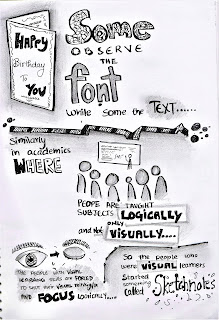 HAPPY
Birthday
To
YOU
Some
OBSERVE
THE
font
while some the TEXT......
Similarly
in academics
WHERE
PEOPLE ARE TAUGHT
SUBJECTS LOGICALLY
and Not only
VISUALLY....
THE PEOPLE WITH VISUAL
LEARNING SKILLS ARE FORCED
TO SHUT THEIR VISUAL
AND FOCUS Logically....
So the people who
were VISUAL learners
Started
something
called Sketchnotes